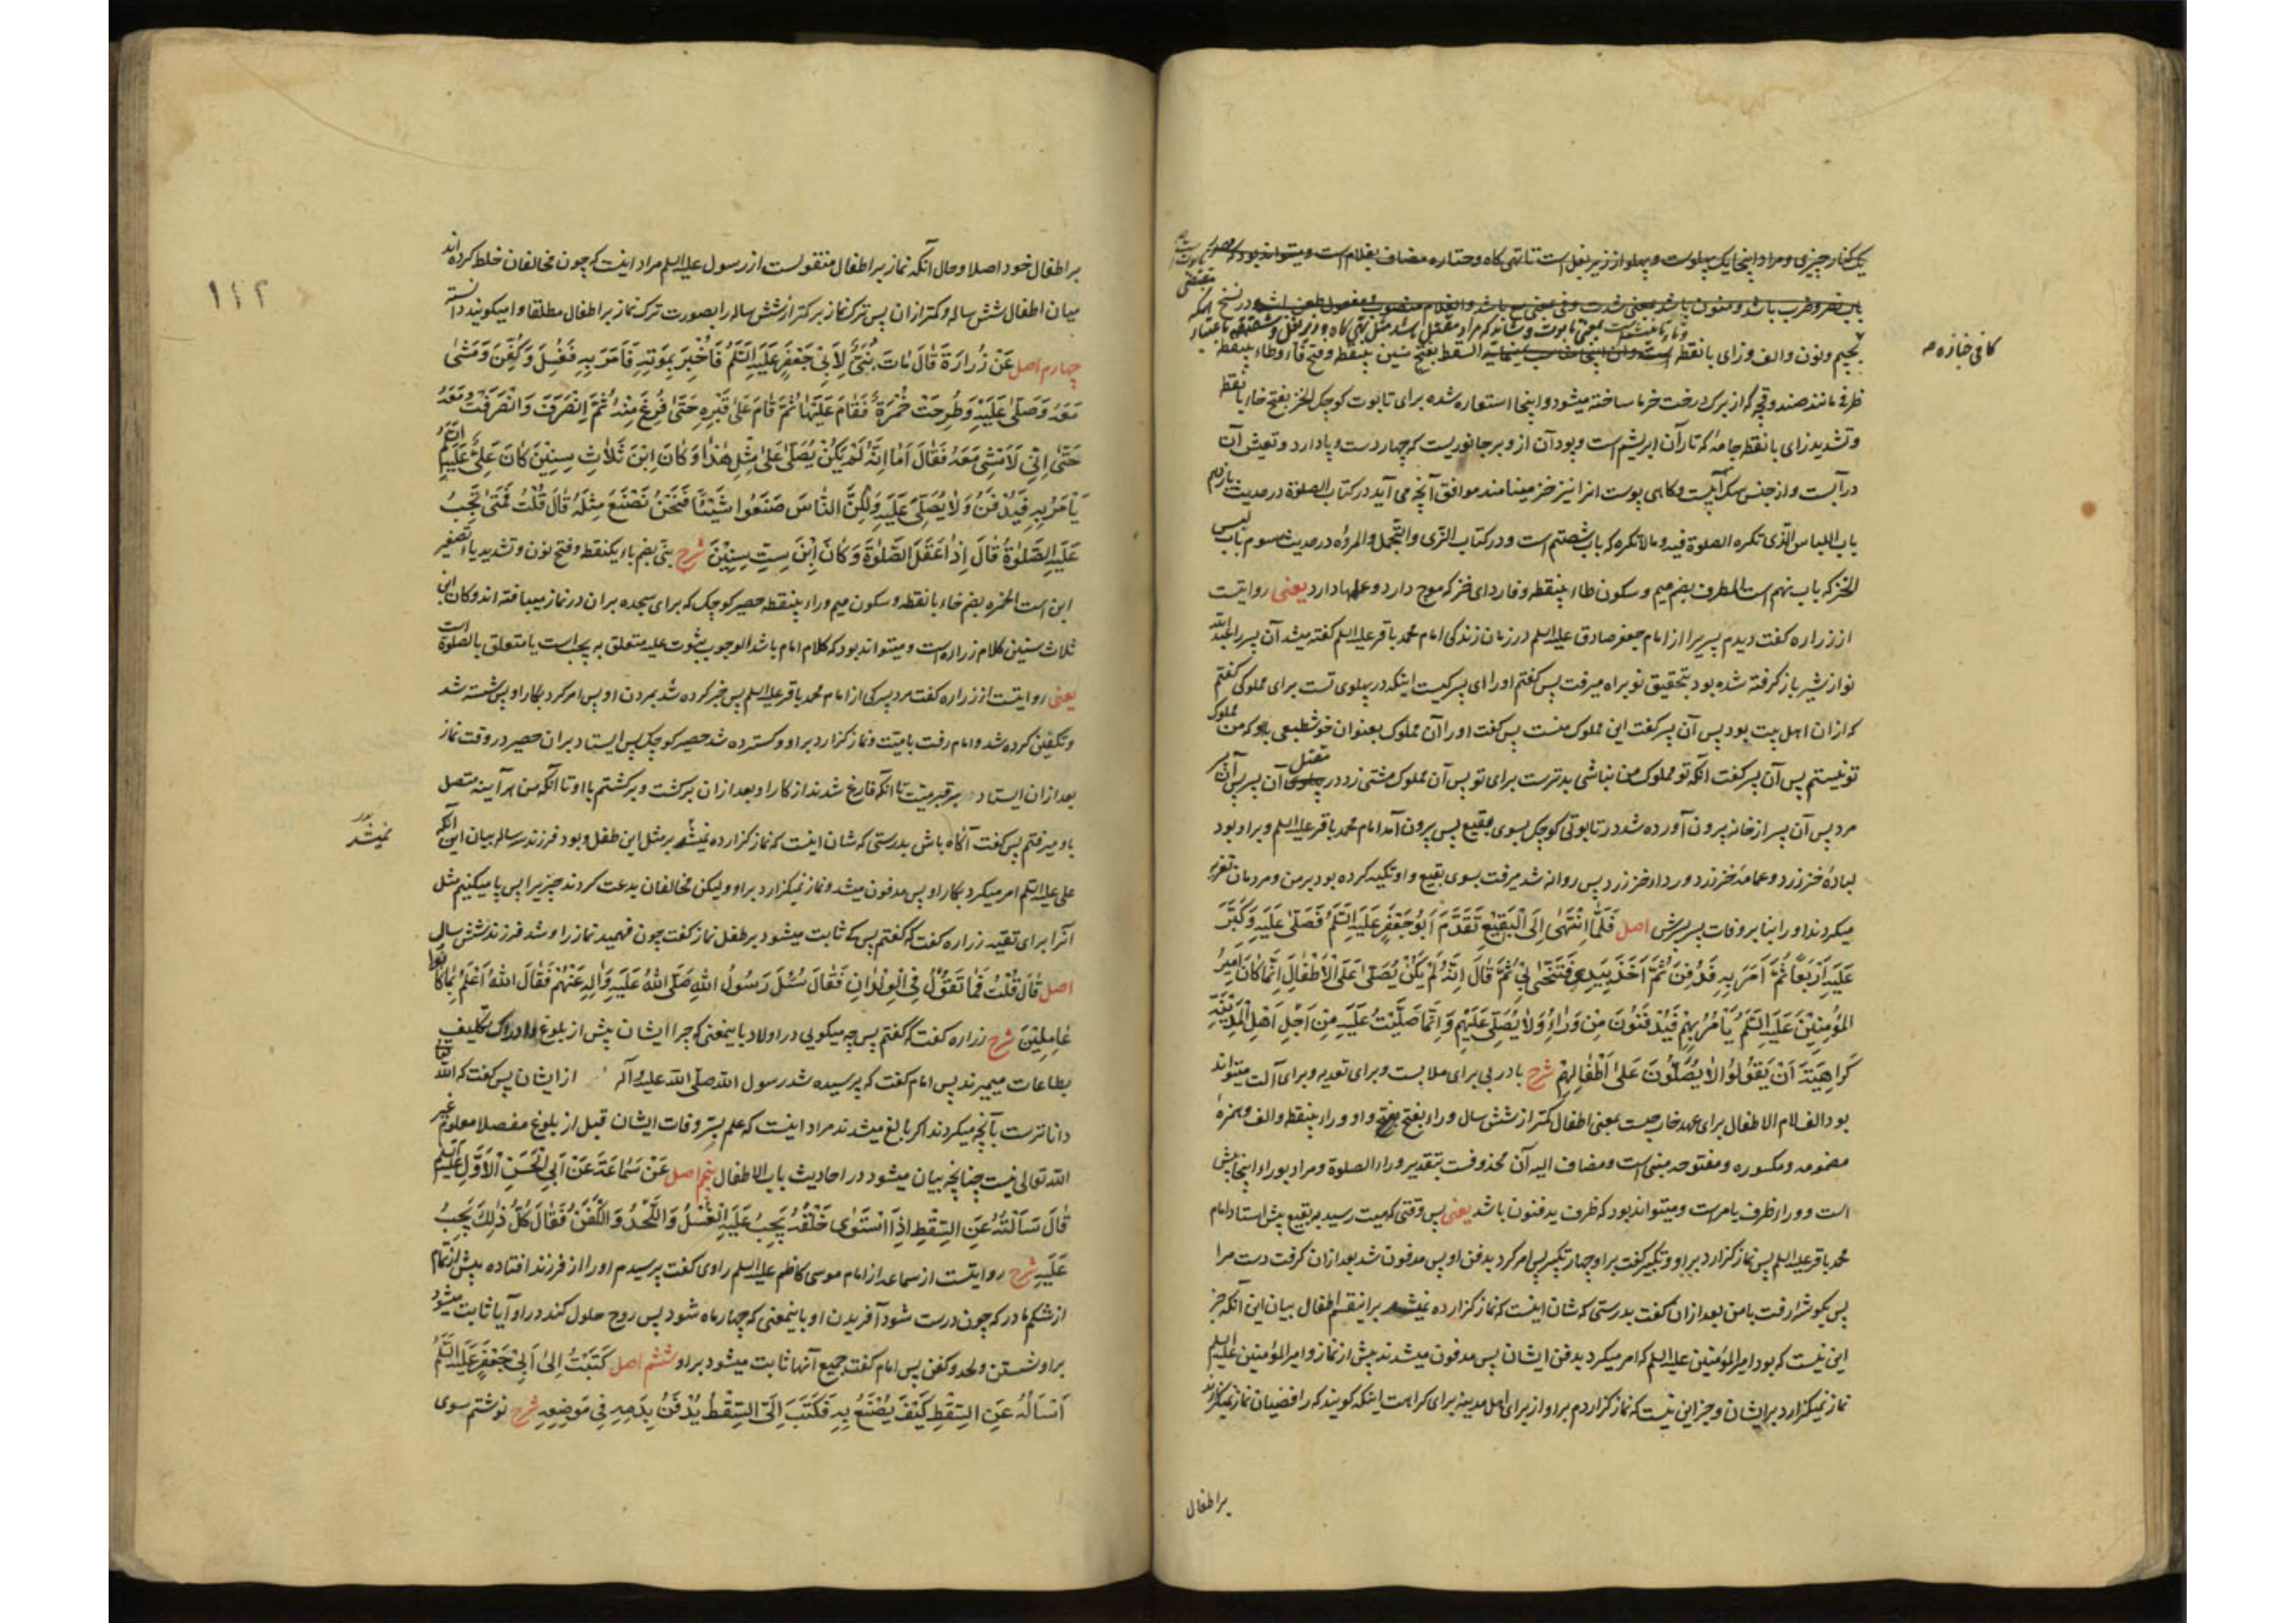 یک کنار چیزی و مراد اینجا یک پهلوست و پهلو از زیر بغل است تا تهی کاه و حتاره مضاف بغلام است
بجیم و نون و الف و زای بانقطه السقط بفتح سین بینقطه و فتح فاء و طاء بینقطه
کافی جنازه
ظرفی مانند صندوقچه که از برک درخت خرما ساخته میشود و اینجا استعاره شده برای تابوت کوچک الخز بفتح خاء بانقطه
و تشدید زای بانقطه جامهٔ که تار آن ابریشم است و پود آن از وبر جانوریست که چهار دست و پا دارد و تعیش آن
در آبست و از جنس سک آبیست و کاهی پوست انرا نیز خز مینامند موافق آنچه می آید در کتاب الصلوة در حدیث یازدهم
باب اللباس الذی تکره الصلوة فیه و مالا تکره که باب شصتم است و در کتاب الزی و التجمل و المروه در حدیث سوم باب لبس
الخز که باب نهم است المطرف بضم میم و سکون طاء بینقطه و فا ردای خز که موج دارد و علمها دارد یعنی روایتست
از زراره کفت دیدم پسریرا از امام جعفر صادق علیه السلم در زمان زندکی امام محمد باقر علیه السلم کفته میشد آن پسر را عبد الله
نو از شیر باز کرفته شده بود بتحقیق نو براه میرفت پس کفتم او را ای پسر کیست اینکه در پهلوی تست برای مملوکی کفتم
که از ان اهل بیت بود پس آن پسر کفت این مملوک منست پس کفت او را آن مملوک بعنوان خوشطبعی باو که من مملوک
تو نیستم پس آن پسر کفت انکه تو مملوک من نباشی بدترست برای تو پس آن مملوک مشتی زد در مقتل آن پسر پس آن پسر
مرد پس آن پسر از خانه بیرون آورده شد در تابوتی کوچک بسوی بقیع پس بیرون آمد امام محمد باقر علیه السلم و بر او بود
لبادهٔ خز زرد و عمامهٔ خز زرد و رداء خز زرد پس روانه شد میرفت بسوی بقیع و او تکیه کرده بود بر من و مردمان تعزیه
میکردند او را بنا بر وفات پسر پسرش اصل فَلَمَّا انْتَهٰی اِلَی الْبَقیعِ تَقَدَّمَ اَبُو جَعْفَرٍ عَلَیْهِ السَّلَمُ فَصَلّٰی عَلَیْهِ وَ کَبَّرَ
عَلَیْهِ اَرْبَعًا ثُمَّ اَمَرَ بِهِ فَدُفِنَ ثُمَّ اَخَذَ بِیَدِی فَتَنَحّٰی بِی ثُمَّ قَالَ اِنَّهُ لَمْ یَکُنْ یُصَلّٰی عَلَی الْاَطْفَالِ اِنَّمَا کَانَ اَمِیرُ
الْمُؤْمِنِینَ عَلَیْهِ السَّلَمُ یَأْمُرُ بِهِمْ فَیُدْفَنُونَ مِنْ وَرَاءُ وَلَا یُصَلِّی عَلَیْهِمْ وَ اِنَّمَا صَلَّیْتُ عَلَیْهِ مِنْ اَجْلِ اَهْلِ الْمَدِینَةِ
کَرَاهِیَةَ اَنْ یَقُولُوا لَا یُصَلُّونَ عَلٰی اَطْفَالِهِمْ شرح با در بی برای ملابست و برای تعدیه و برای آلت میتواند
بود الف لام الاطفال برای عهد خارجیست بمعنی اطفال کمتر از شش سال وراء بفتح واو و راء بینقطه و الف و همزهٔ
مضمومه و مکسوره و مفتوحه مبنی است و مضاف الیه آن محذوفست بتقدیر وراء الصلوة و مراد بوراء اینجا پیش
است و وراء ظرف یامر است و میتواند بود که ظرف یدفنون باشد یعنی پس وقتی که میت رسید ببقیع پیش استاد امام
محمد باقر علیه السلم پس نماز کزارد بر او و تکبیر کفت بر او چهار تکبیر پس امر کرد بدفن او پس مدفون شد بعد از ان کرفت دست مرا
پس بکوشه رفت با من بعد از ان کفت بدرستی که شان اینست که نماز کزارده نمیشد بر اینقسم اطفال بیان این آنکه جز
این نیست که بود امیر المؤمنین علیه السلم که امر میکرد بدفن ایشان پس مدفون میشدند پیش از نماز و امیر المؤمنین علیه السلم
نماز نمیکزارد بر ایشان و جز این نیست که نماز کزاردم بر او از برای اهل مدینه برای کراهت اینکه کویند که رافضیان نماز نمیکزارند
بر اطفال
۱۴۲
بر اطفال خود اصلا و حال آنکه نماز بر اطفال منقولست از رسول علیه السلم مراد اینست که چون مخالفان خلط کرده اند
میان اطفال شش ساله و کمتر از ان پس ترک نماز بر کمتر از شش ساله را بصورت ترک نماز بر اطفال مطلقا وامیکویند دانسته
چهارم اصل عَنْ زُرَارَةَ قَالَ مَاتَ بُنَیٌّ لِاَبِی جَعْفَرٍ عَلَیْهِ السَّلَمُ فَاُخْبِرَ بِمَوْتِهِ فَاَمَرَ بِهِ فَغُسِلَ وَ کُفِّنَ وَ مَشٰی
مَعَهُ وَ صَلّٰی عَلَیْهِ وَ طُرِحَتْ خُمْرَةٌ فَقَامَ عَلَیْهَا ثُمَّ قَامَ عَلٰی قَبْرِهِ حَتّٰی فُرِغَ مِنْهُ ثُمَّ انْصَرَفَ وَ انْصَرَفْتُ مَعَهُ
حَتّٰی اِنِّی لَاَمْشِی مَعَهُ فَقَالَ اَمَا اِنَّهُ لَمْ یَکُنْ یُصَلّٰی عَلٰی مِثْلِ هٰذَا وَ کَانَ ابْنَ ثَلَاثِ سِنِینَ کَانَ عَلِیٌّ عَلَیْهِ السَّلَمُ
یَأْمُرُ بِهِ فَیُدْفَنُ وَلَا یُصَلّٰی عَلَیْهِ وَلٰکِنَّ النَّاسَ صَنَعُوا شَیْئًا فَنَحْنُ نَصْنَعُ مِثْلَهُ قَالَ قُلْتُ فَمَتٰی تَجِبُ
عَلَیْهِ الصَّلٰوةُ قَالَ اِذَا عَقَلَ الصَّلٰوةَ وَ کَانَ ابْنَ سِتِّ سِنِینَ شرح بنی بضم باء یکنقطه و فتح نون و تشدید یاء تصغیر
ابن است الخمره بضم خاء بانقطه و سکون میم و راء بینقطه حصیر کوچک که برای سجده بر ان در نماز میبافته اند و کان ابن
ثلاث سنین کلام زراره است و میتواند بود که کلام امام باشد الوجوب ثبوت علیه متعلق به یجب است یا متعلق بالصلوة است
یعنی روایتست از زراره کفت مرد پسرکی از امام محمد باقر علیه السلم پس خبر کرده شد بمردن او پس امر کرد بکار او پس شسته شد
و تکفین کرده شد و امام رفت با میت و نماز کزارد بر او و کسترده شد حصیر کوچک پس ایستاد بر ان حصیر در وقت نماز
بعد از ان ایستاد بر قبر میت تا آنکه فارغ شدند از کار او بعد از ان برکشت و برکشتم با او تا آنکه من هر آینه متصل
با او میرفتم پس کفت آکاه باش بدرستی که شان اینست که نماز کزارده نمیشد بر مثل این طفل و بود فرزند سه ساله بیان این آنکه
علی علیه السلم امر میکرد بکار او پس مدفون میشد و نماز نمیکزارد بر او ولیکن مخالفان بدعت کردند چیزیرا پس ما میکنیم مثل
آنرا برای تقیه زراره کفت که کفتم پس کی ثابت میشود بر طفل نماز کفت چون فهمید نماز را و شد فرزند شش سال
اصل قَالَ قُلْتُ فَمَا تَقُولُ فِی الْوِلْدَانِ فَقَالَ سُئِلَ رَسُولُ اللهِ صَلَّی اللهُ عَلَیْهِ وَ اٰلِهِ عَنْهُمْ فَقَالَ اللهُ اَعْلَمُ بِمَا کَانُوا
عَامِلِینَ شرح زراره کفت که کفتم پس چه میکویی در اولاد باینمعنی که چرا ایشان پیش از بلوغ و ادراک تکلیف
بطاعات میمیرند پس امام کفت که پرسیده شد رسول الله صلی الله علیه و آله از ایشان پس کفت که الله تعالی
داناترست بآنچه میکردند اکر بالغ میشدند مراد اینست که علم بسر وفات ایشان قبل از بلوغ مفصلا معلوم غیر
الله تعالی نیست چنانچه بیان میشود در احادیث باب الاطفال پنجم اصل عَنْ سَمَاعَةَ عَنْ اَبِی الْحَسَنِ الْاَوَّلِ عَلَیْهِ السَّلَمُ
قَالَ سَاَلْتُهُ عَنِ السِّقْطِ اِذَا اسْتَوٰی خَلْقُهُ یَجِبُ عَلَیْهِ الْغُسْلُ وَ اللَّحْدُ وَ الْکَفَنُ فَقَالَ کُلُّ ذٰلِکَ یَجِبُ
عَلَیْهِ شرح روایتست از سماعه از امام موسی کاظم علیه السلم راوی کفت پرسیدم او را از فرزند افتاده پیش از تمام
از شکم مادر که چون درست شود آفریدن او باینمعنی که چهار ماه شود پس روح حلول کند در او آیا ثابت میشود
بر او شستن و لحد و کفن پس امام کفت جمیع آنها ثابت میشود بر او ششم اصل کَتَبْتُ اِلٰی اَبِی جَعْفَرٍ عَلَیْهِ السَّلَمُ
اَسْأَلُهُ عَنِ السِّقْطِ کَیْفَ یُصْنَعُ بِهِ فَکَتَبَ اِلَیَّ السِّقْطُ یُدْفَنُ بِدَمِهِ فِی مَوْضِعِهِ شرح نوشتم سوی